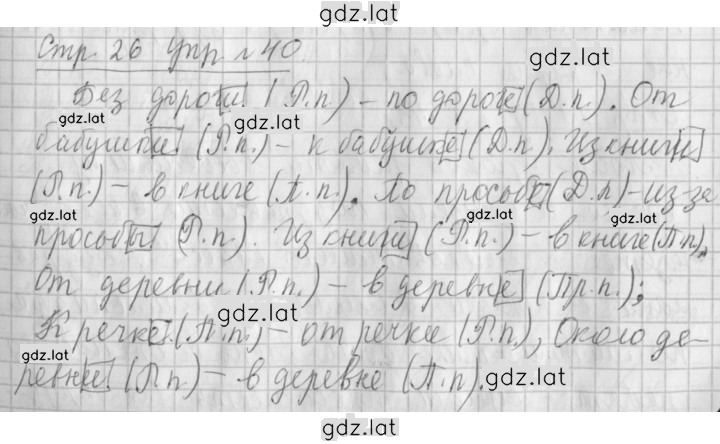 gdz.lat
Стр. 26 упр № 40.
gdz.lat
Без дороги (Р.п.) – по дороге (Д.п.). От
gdz.lat gdz.lat
бабушки (Р.п.) – к бабушке (Д.п.). Из книги
(Р.п.) – в книге (П.п.). По просьбе (Д.п) – из-за
gdz.lat gdz.lat gdz.lat
просьбы (Р.п.). Из книги (Р.п.) – в книге (П.п).
От деревни (Р.п.) – в деревне (Пр.п.);
gdz.lat
К речке (П.п.) – от речки (Р.п.), Около де-
gdz.lat
ревне (П.п) – в деревне (П.п).
gdz.lat
gdz.lat